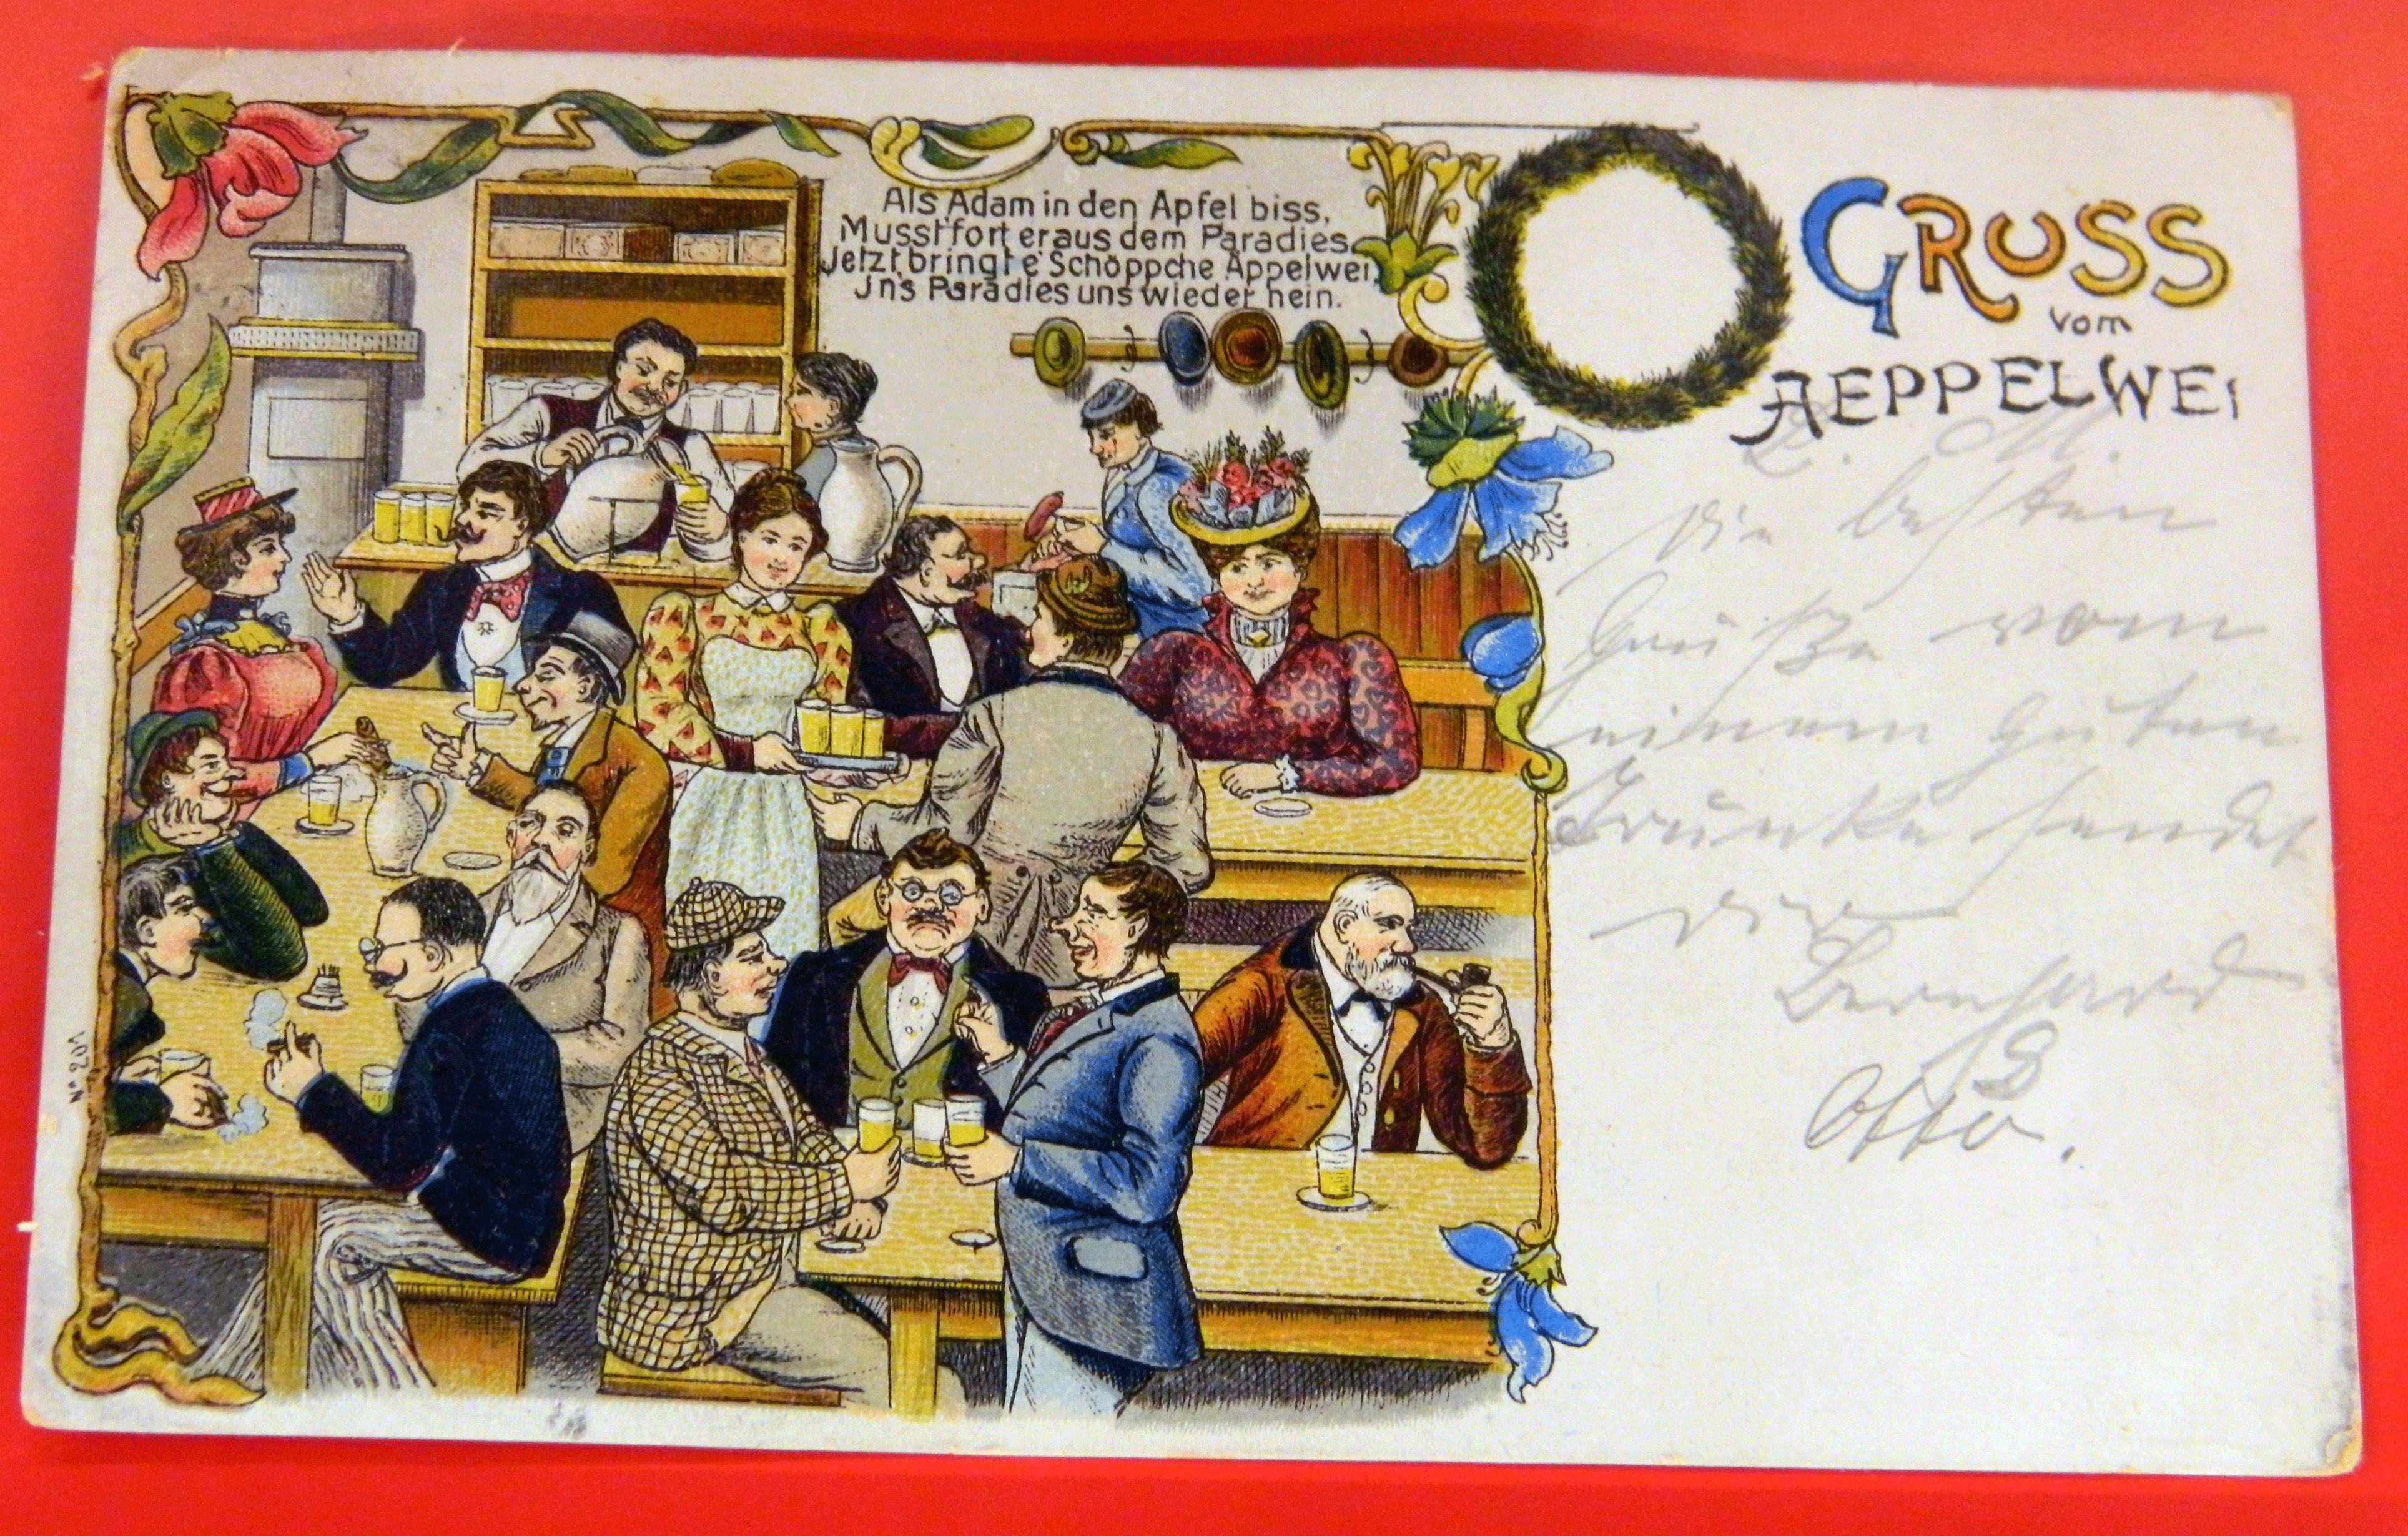 Als Adam in den Apfel biss,
Musst' fort er aus dem Paradies,
Jetzt bringt e' Schöppche Äppelwei,
Jn's Paradies uns wieder nein.
GRUSS
vom
AEPPELWEI
L. M.
Die besten
Grüße vom
einem guten
Trunke sendet
Dir
Bernhard
&
Otto.
Nº 201